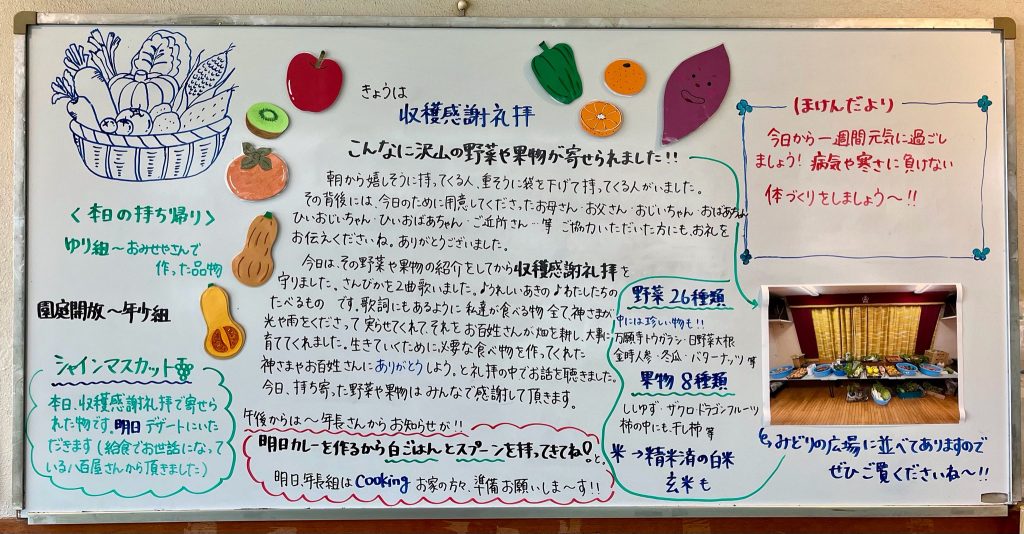 きょうは
収穫感謝礼拝
こんなに沢山の野菜や果物が寄せられました!!
朝から嬉しそうに持ってくる人、重そうに袋を下げて持ってくる人がいました。
その背後には、今日のために用意してくださったお母さん・お父さん・おじいちゃん・おばあちゃん
ひいおじいちゃん・ひいおばあちゃん・ご近所さん…等 ご協力いただいた方にも、お礼を
お伝えくださいね。ありがとうございました。
今日は、その野菜や果物の紹介をしてから収穫感謝礼拝を
守りました。さんびかを2曲歌いました。♪うれしいあきの♪わたしたちの
たべるもの です。歌詞にもあるように私達が食べる物全て、神さまが
光や雨をくださって実らせてくれて、それをお百姓さんが畑を耕し、大事に
育ててくれました。生きていくために必要な食べ物を作ってくれた
神さまやお百姓さんにありがとうしよう。と礼拝の中でお話を聴きました。
今日、持ち寄った野菜や果物はみんなで感謝して頂きます。
午後からは〜年長さんからお知らせが!!
明日カレーを作るから白ごはんとスプーンを持ってきてね!と、
明日、年長組はcooking お家の方々、準備お願いしま〜す!!
<本日の持ち帰り>
ゆり組〜おみせやさんで
作った品物
園庭開放〜年少組
シャインマスカット
本日、収穫感謝礼拝で寄せら
れた物です。明日デザートにいた
だきます(給食でお世話になって
いる八百屋さんから頂きました)
野菜26種類
中には珍しい物も!!
万願寺トウガラシ・日野菜大根
金時人参・冬瓜・バターナッツ 等
果物 8種類
ししゆず・ザクロ・ドラゴンフルーツ
柿の中にも、干し柿 等
米→精米済の白米
玄米も
ほけんだより
今日から一週間元気に過ごし
ましょう! 病気や寒さに負けない
体づくりをしましょう〜!!
みどりの広場に並べてありますので
ぜひご覧くださいね〜!!